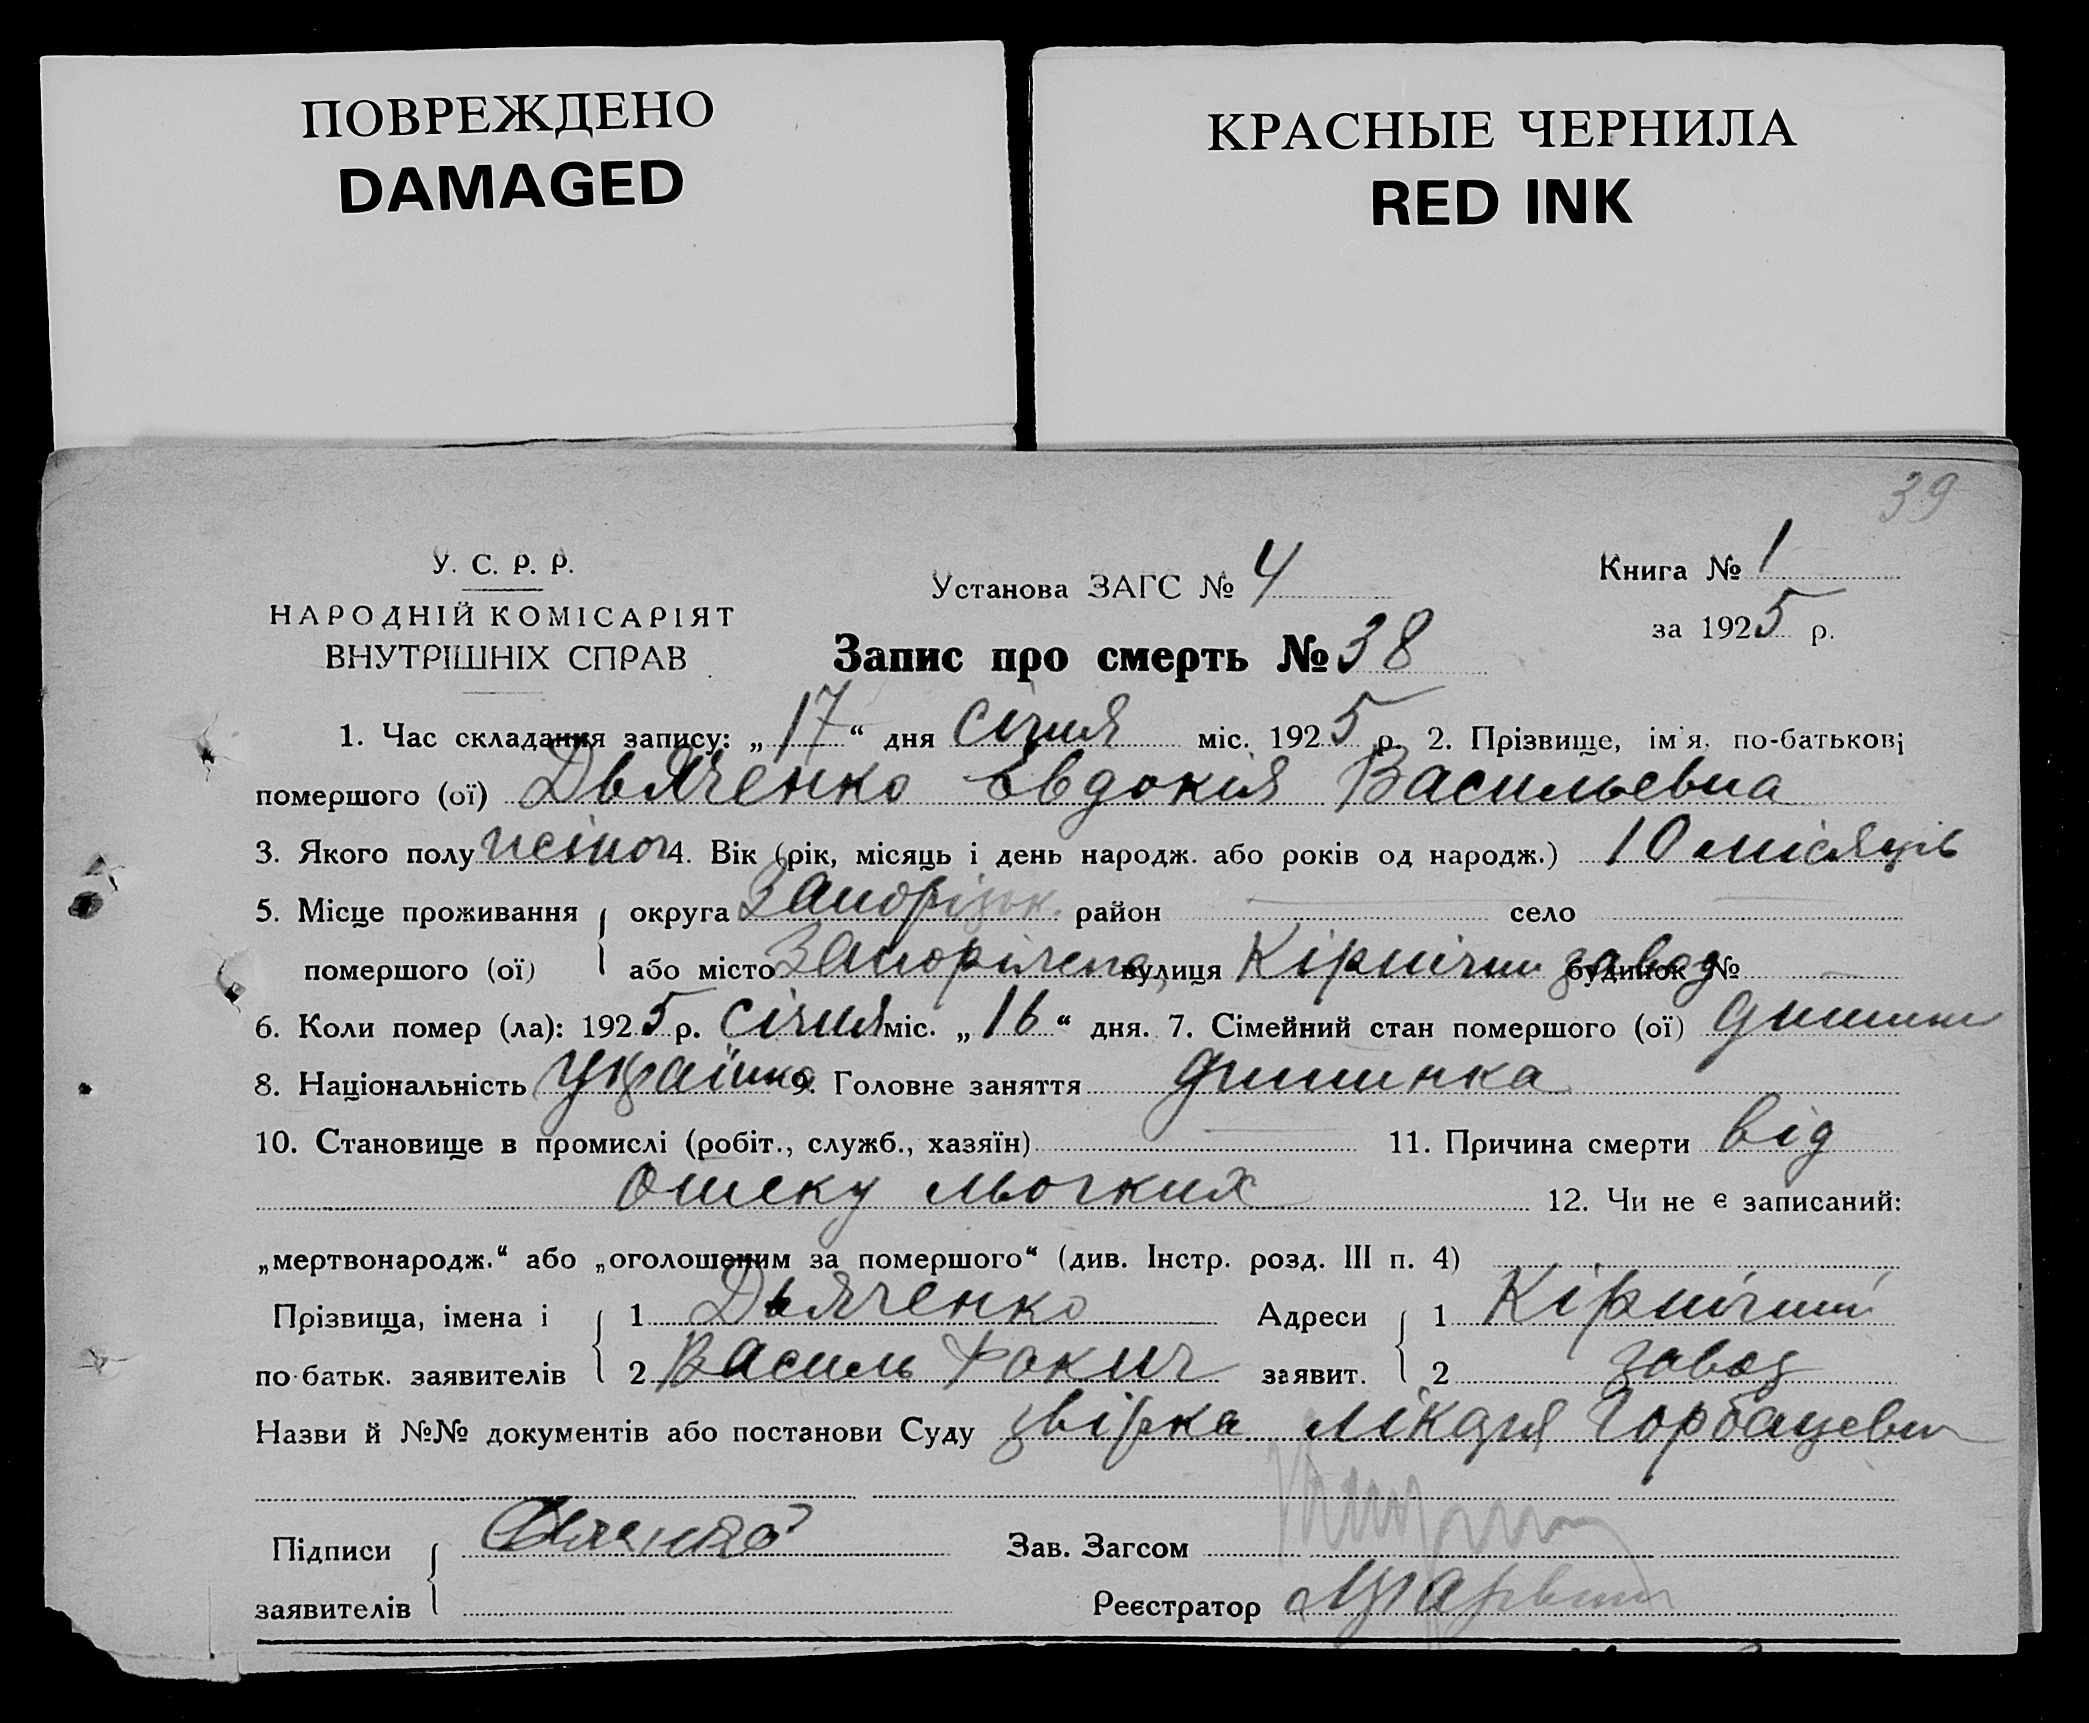 ПОВРЕЖДЕНО
DAMAGED
КРАСНЫЕ ЧЕРНИЛА
RED INK
39
У. С. Р. Р.
НАРОДНІЙ КОМІСАРІЯТ
ВНУТРІШНІХ СПРАВ
Установа ЗАГС № 4
Книга № 1
за 1925 р.
Запис про смерть № 38
1. Час складання запису: „17“ дня січня міс. 1925 р. 2. Прізвище, ім'я, по-батькові
помершого (ої) Дьяченко Евдокія Васильевна
3. Якого полу жіноч 4. Вік (рік, місяць і день народж. або років од народж.) 10 місяців
5. Місце проживання { округа Запорізьк. район — село —
помершого (ої) або місто Запоріжжа, вулиця Кірпічни завод будинок № —
6. Коли помер (ла): 1925 р. січня міс. „16“ дня. 7. Сімейний стан помершого (ої) дитина
8. Національність Украінка 9. Головне заняття дитинка
10. Становище в промислі (робіт., служб., хазяїн) — 11. Причина смерти від
отеку льогких 12. Чи не є записаний:
„мертвонародж.“ або „оголошеним за помершого“ (див. Інстр. розд. III п. 4)
Прізвища, імена і { 1 Дьяченко Адреси { 1 Кірпічний
по-батьк. заявителів 2 Василь Фокич заявит. 2 завод
Назви й №№ документів або постанови Суду звірка лікаря Горбацевич
Підписи { Дяченко Зав. Загсом
заявителів Реєстратор